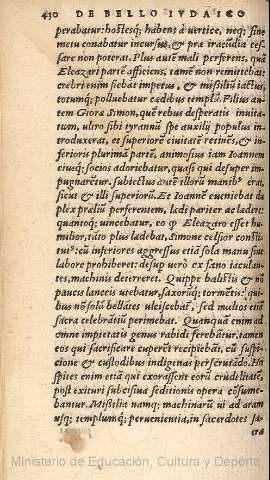 430 DE BELLO IVDAICO
perabatur: hostesq́; habens à vertice, neq; sine
metu conabatur incursus, & præ iracūdia ces-
sare non poterat. Plus autē mali perferens, quā
Eleazari parte afficiens, tamē non remittebat:
crebri enim fiebāt impetus, & missiliū iactus,
totumq́; polluebatur cædibus templū. Filius au-
tem Gioræ Simon, quē rebus desperatis inuita-
tum, ultro sibi tyrannū spe auxilij populus in-
troduxerat, et superiorē ciuitatē retinēs, & in-
ferioris plurima partē, animosius iam Ioannem
eiusq́; socios adoriebatur, quasi qui desuper im-
pugnarētur. subiectus autē illorū manib⁹ erat,
sicut & illi superiorū. Et Ioannē eueniebat du
plex præliū perferentem, lædi pariter ac lædere:
quantoq́; uincebatur, eo q̄ Eleazaro esset hu-
milior, tāto plus lædebat, Simone celsior consti-
tut⁹: cū inferiores aggressus etiā sola manu sine
labore prohiberet: desup uerò ex fano iaculan-
tes, machinis deterreret. Quippe balistis & nō
paucis lanceis utebatur, saxorūq́; tormētis: qui-
bus nō solū bellātes ulciscebat, sed multos etiā
sacra celebrātiū perimebat. Quanquā enim ad
omne impietatis genus rabidi ferebātur, tamē
eos qui sacrificare cuperēt recipiebāt, cū suspi-
cione & custodibus indigenas perscrutādo. Ho
spites enim etiā qui exorassent eorū crudelitatē,
post exituri subcisiua seditionis opera cōsume-
bantur. Missilia namq; machinarū ui ad aram
usq; templumq́; peruenientia, in sacerdotes sa-
cra
Ministerio de Educación, Cultura y Deporte